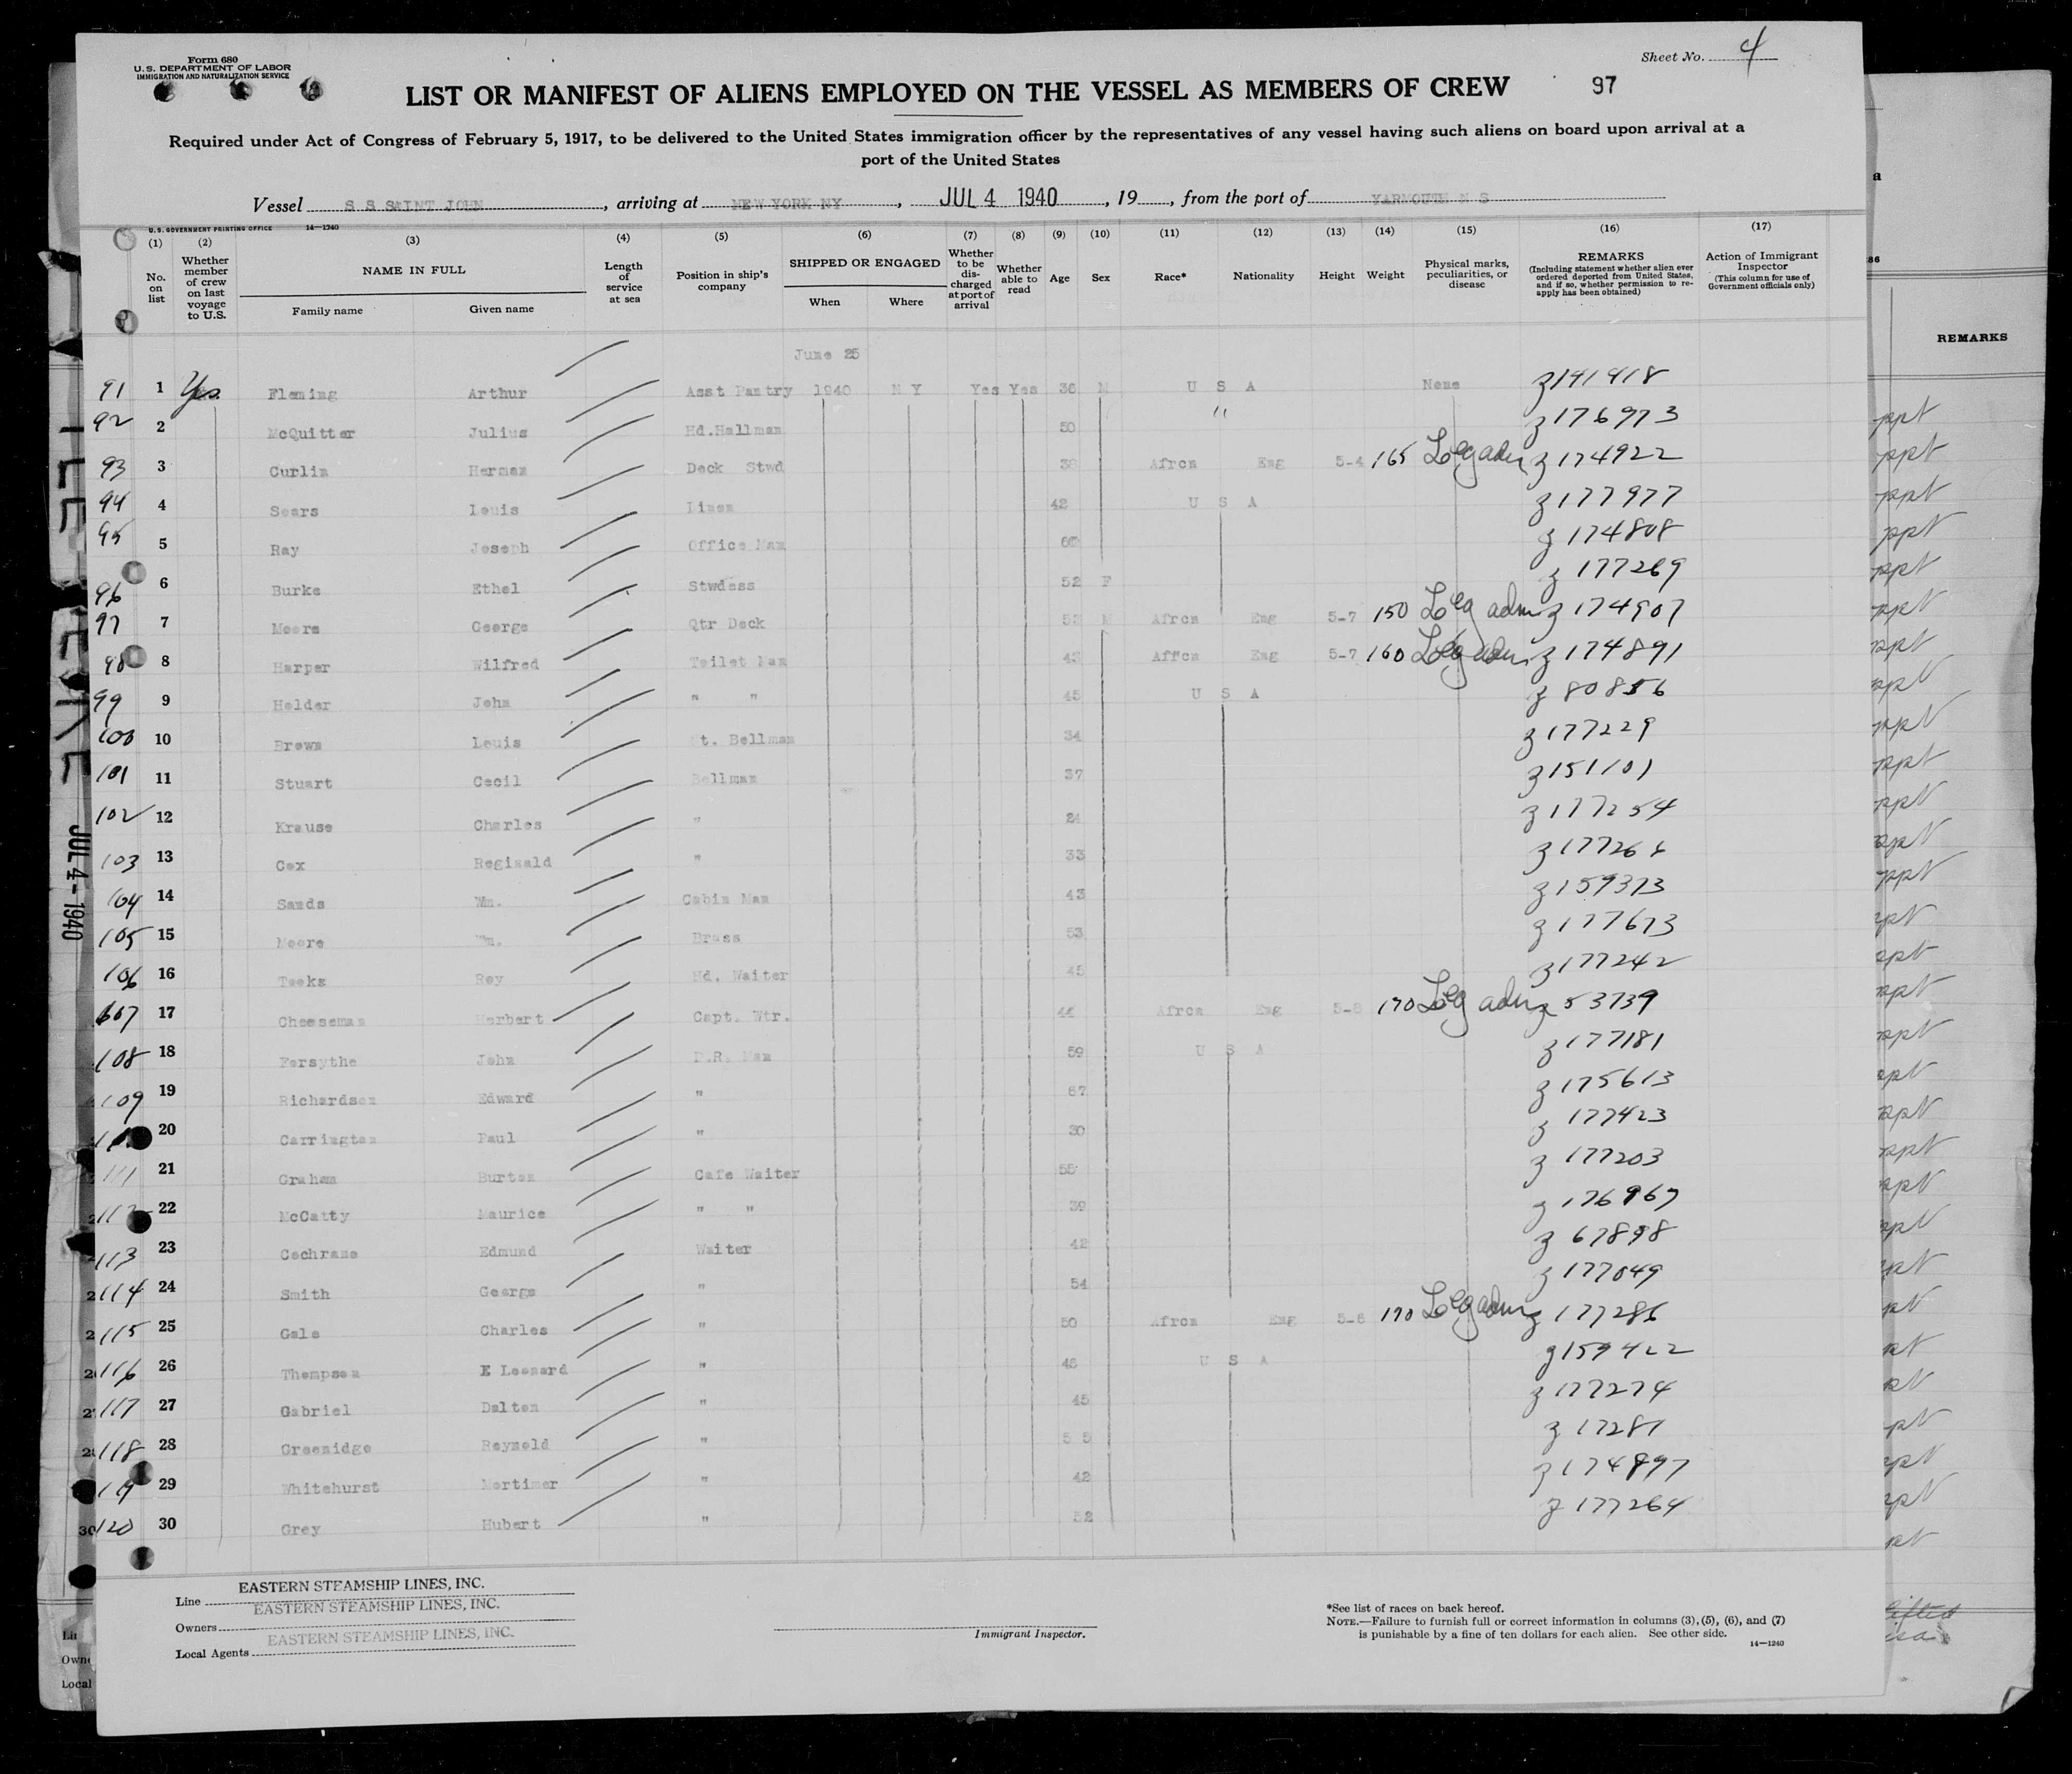 Form 680
U. S. DEPARTMENT OF LABOR
IMMIGRATION AND NATURALIZATION SERVICE
Sheet No. 4
LIST OR MANIFEST OF ALIENS EMPLOYED ON THE VESSEL AS MEMBERS OF CREW 97
Required under Act of Congress of February 5, 1917, to be delivered to the United States immigration officer by the representatives of any vessel having such aliens on board upon arrival at a
port of the United States
Vessel S S SAINT JOHN, arriving at NEW YORK NY, JUL 4 1940, 19, from the port of YARMOUTH N S
U. S. GOVERNMENT PRINTING OFFICE 14—1240
(1) (2) (3) (4) (5) (6) (7) (8) (9) (10) (11) (12) (13) (14) (15) (16) (17)
No. on list
Whether member of crew on last voyage to U.S.
NAME IN FULL
Family name Given name
Length of service at sea
Position in ship's company
SHIPPED OR ENGAGED
When Where
Whether to be discharged at port of arrival
Whether able to read
Age Sex Race* Nationality Height Weight
Physical marks, peculiarities, or disease
REMARKS
(Including statement whether alien ever ordered deported from United States, and if so, whether permission to reapply has been obtained)
Action of Immigrant Inspector
(This column for use of Government officials only)
June 25
91 1 Yes Fleming Arthur Asst Pantry 1940 N Y Yes Yes 36 M U S A None z141418
92 2 McQuitter Julius Hd.Hallman 50 " z176973
93 3 Curlin Herman Deck Stwd 38 Afrcn Eng 5-4 165 Leg adm z174922
94 4 Sears Louis Linen 42 U S A z177977
95 5 Ray Joseph Office Man z174808
96 6 Burke Ethel Stwdess 52 F z177269
97 7 Moore George Qtr Deck M Afrcn Eng 5-7 150 Leg adm z174907
98 8 Harper Wilfred Toilet Man 43 Affcn Eng 5-7 160 Leg adm z174891
99 9 Holder John " " 45 U S A z80856
100 10 Brown Louis t. Bellman 34 z177229
101 11 Stuart Cecil Bellman 37 z151101
102 12 Krause Charles " 24 z177254
103 13 Cox Reginald " 33
104 14 Sands Wm. Cabin Man 43 z159373
105 15 Moore Wm. Brass 53 z177673
106 16 Teeks Roy Hd. Waiter 45 z177242
107 17 Cheeseman Herbert Capt. Wtr. 44 Afrcn Eng 5-8 170 Leg adm z53739
108 18 Forsythe John D.R. Man 59 U S A z177181
109 19 Richardson Edward " 67 z175613
20 Carrington Paul " 30 z177423
111 21 Graham Burton Cafe Waiter 55 z177203
112 22 McCatty Maurice " " 39 z176967
113 23 Cochrane Edmund Waiter 42 z67898
114 24 Smith George " 54 z177049
115 25 Gale Charles " 50 Afrcn Eng 5-8 170 Leg adm z177286
116 26 Thompson E Leonard " 48 U S A z159422
117 27 Gabriel Dalton " 45 z177274
118 28 Greenidge Reynold " 55 z17281
119 29 Whitehurst Mortimer " 42 z174897
120 30 Grey Hubert " 52 z177264
JUL 4- 1940
REMARKS
ppt
ppt
ppt
ppt
ppt
Line EASTERN STEAMSHIP LINES, INC.
Owners EASTERN STEAMSHIP LINES, INC.
Local Agents EASTERN STEAMSHIP LINES, INC.
Immigrant Inspector.
*See list of races on back hereof.
NOTE.—Failure to furnish full or correct information in columns (3), (5), (6), and (7)
is punishable by a fine of ten dollars for each alien. See other side.
14—1240